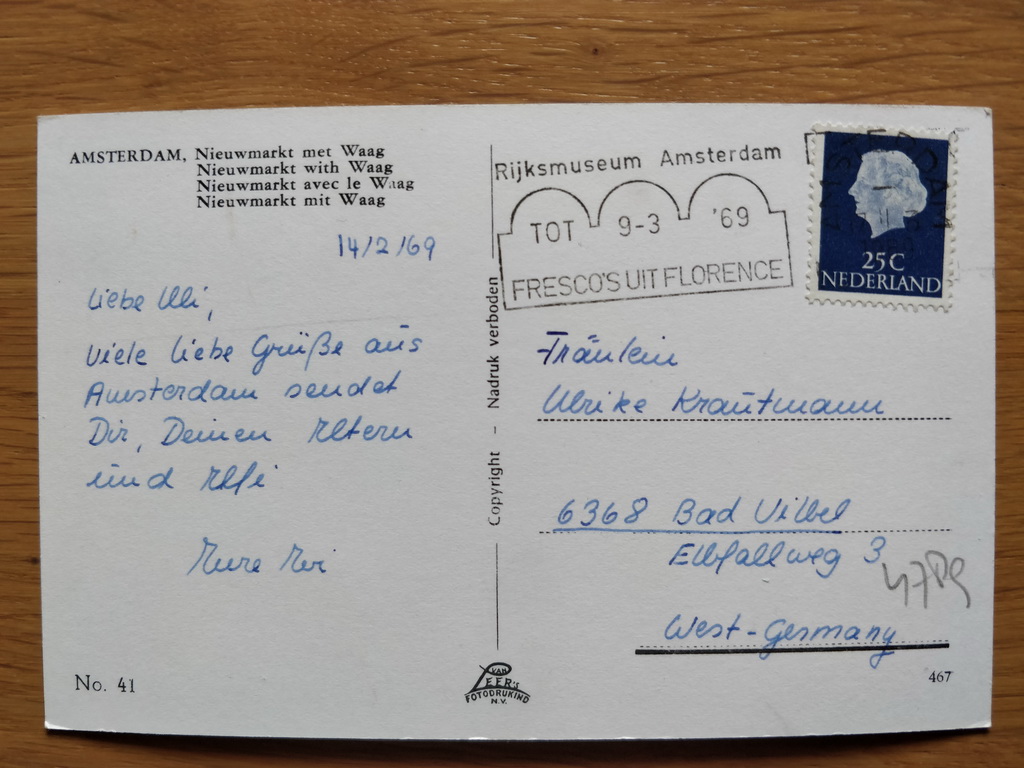 AMSTERDAM, Nieuwmarkt met Waag
Nieuwmarkt with Waag
Nieuwmarkt avec le Waag
Nieuwmarkt mit Waag
14/2/69
Liebe Uli,
viele liebe Grüße aus
Amsterdam sendet
Dir, Deinen Eltern
und Elfi
Eure
No. 41
Copyright - Nadruk verboden
VAN
LEER'S
FOTODRUKIND
N.V.
Rijksmuseum Amsterdam
TOT 9-3 '69
FRESCO'S UIT FLORENCE
AMSTERDAM
25C
NEDERLAND
Fräulein
Ulrike Krautmann
6368 Bad Vilbel
Elbfallweg 3
West-Germany
467